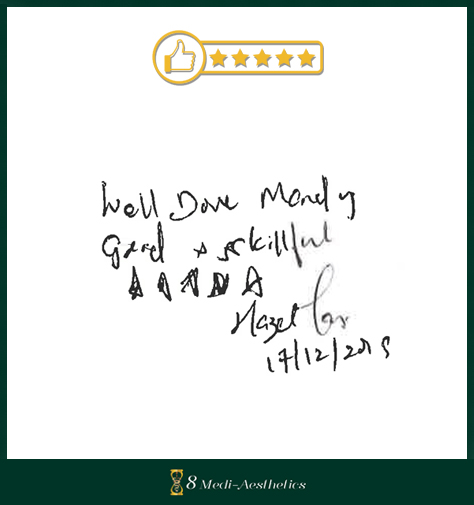 Well Done Mandy
Good & skillful
Hazel
17/12/2019
8 Medi-Aesthetics